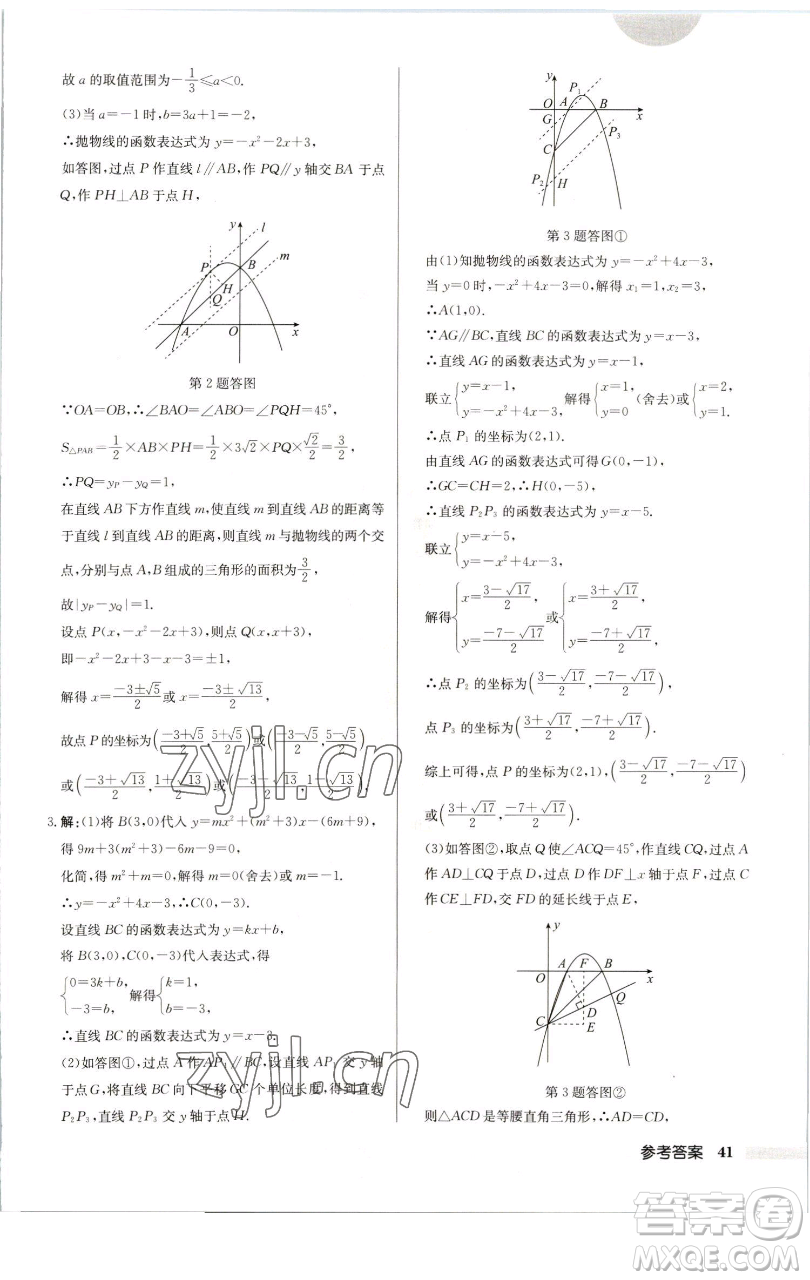 故 a 的取值范围为−1/3≤a<0.
(3)当 a=−1 时,b=3a+1=−2,
∴抛物线的函数表达式为 y=−x²−2x+3,
如答图,过点 P 作直线 l∥AB,作 PQ∥y 轴交 BA 于点
Q,作 PH⊥AB 于点 H,
y
l
m
P
B
H
Q
A
O
x
第 2 题答图
∵OA=OB,∴∠BAO=∠ABO=∠PQH=45°,
S△PAB=1/2×AB×PH=1/2×3√2×PQ×√2/2=3/2,
∴PQ=yP−yQ=1.
在直线 AB 下方作直线 m,使直线 m 到直线 AB 的距离等
于直线 l 到直线 AB 的距离,则直线 m 与抛物线的两个交
点,分别与点 A,B 组成的三角形的面积为3/2,
故|yP−yQ|=1.
设点 P(x,−x²−2x+3),则点 Q(x,x+3),
即−x²−2x+3−x−3=±1,
解得 x=(−3±√5)/2或 x=(−3±√13)/2,
故点 P 的坐标为((−3+√5)/2,(5+√5)/2)或((−3−√5)/2,(5−√5)/2)
或((−3+√13)/2,(1+√13)/2)或((−3−√13)/2,(1−√13)/2).
3.解:(1)将 B(3,0)代入 y=mx²+(m²+3)x−(6m+9),
得 9m+3(m²+3)−6m−9=0,
化简,得 m²+m=0,解得 m=0(舍去)或 m=−1.
∴y=−x²+4x−3,∴C(0,−3).
设直线 BC 的函数表达式为 y=kx+b,
将 B(3,0),C(0,−3)代入表达式,得
{0=3k+b, −3=b, 解得{k=1, b=−3,
∴直线 BC 的函数表达式为 y=x−3.
(2)如答图①,过点 A 作 AP₁∥BC,设直线 AP₁ 交 y 轴
于点 G,将直线 BC 向下平移 GC 个单位长度,得到直线
P₂P₃,直线 P₂P₃ 交 y 轴于点 H.
y
P₁
O
A
B
x
G
P₃
C
P₂
H
第 3 题答图①
由(1)知抛物线的函数表达式为 y=−x²+4x−3,
当 y=0 时,−x²+4x−3=0,解得 x₁=1,x₂=3,
∴A(1,0).
∵AG∥BC,直线 BC 的函数表达式为 y=x−3,
∴直线 AG 的函数表达式为 y=x−1,
联立{y=x−1, y=−x²+4x−3, 解得{x=1, y=0 (舍去)或{x=2, y=1.
∴点 P₁ 的坐标为(2,1).
由直线 AG 的函数表达式可得 G(0,−1),
∴GC=CH=2,∴H(0,−5),
∴直线 P₂P₃ 的函数表达式为 y=x−5.
联立{y=x−5, y=−x²+4x−3,
解得{x=(3−√17)/2, y=(−7−√17)/2 或{x=(3+√17)/2, y=(−7+√17)/2,
∴点 P₂ 的坐标为((3−√17)/2,(−7−√17)/2),
点 P₃ 的坐标为((3+√17)/2,(−7+√17)/2).
综上可得,点 P 的坐标为(2,1),((3−√17)/2,(−7−√17)/2)
或((3+√17)/2,(−7+√17)/2).
(3)如答图②,取点 Q 使∠ACQ=45°,作直线 CQ,过点 A
作 AD⊥CQ 于点 D,过点 D 作 DF⊥x 轴于点 F,过点 C
作 CE⊥FD,交 FD 的延长线于点 E,
y
O
A
F
B
x
Q
D
C
E
第 3 题答图②
则△ACD 是等腰直角三角形,∴AD=CD,
参考答案 41
zyjl.cn
zyjl.cn
答案卷
MXQE.COM